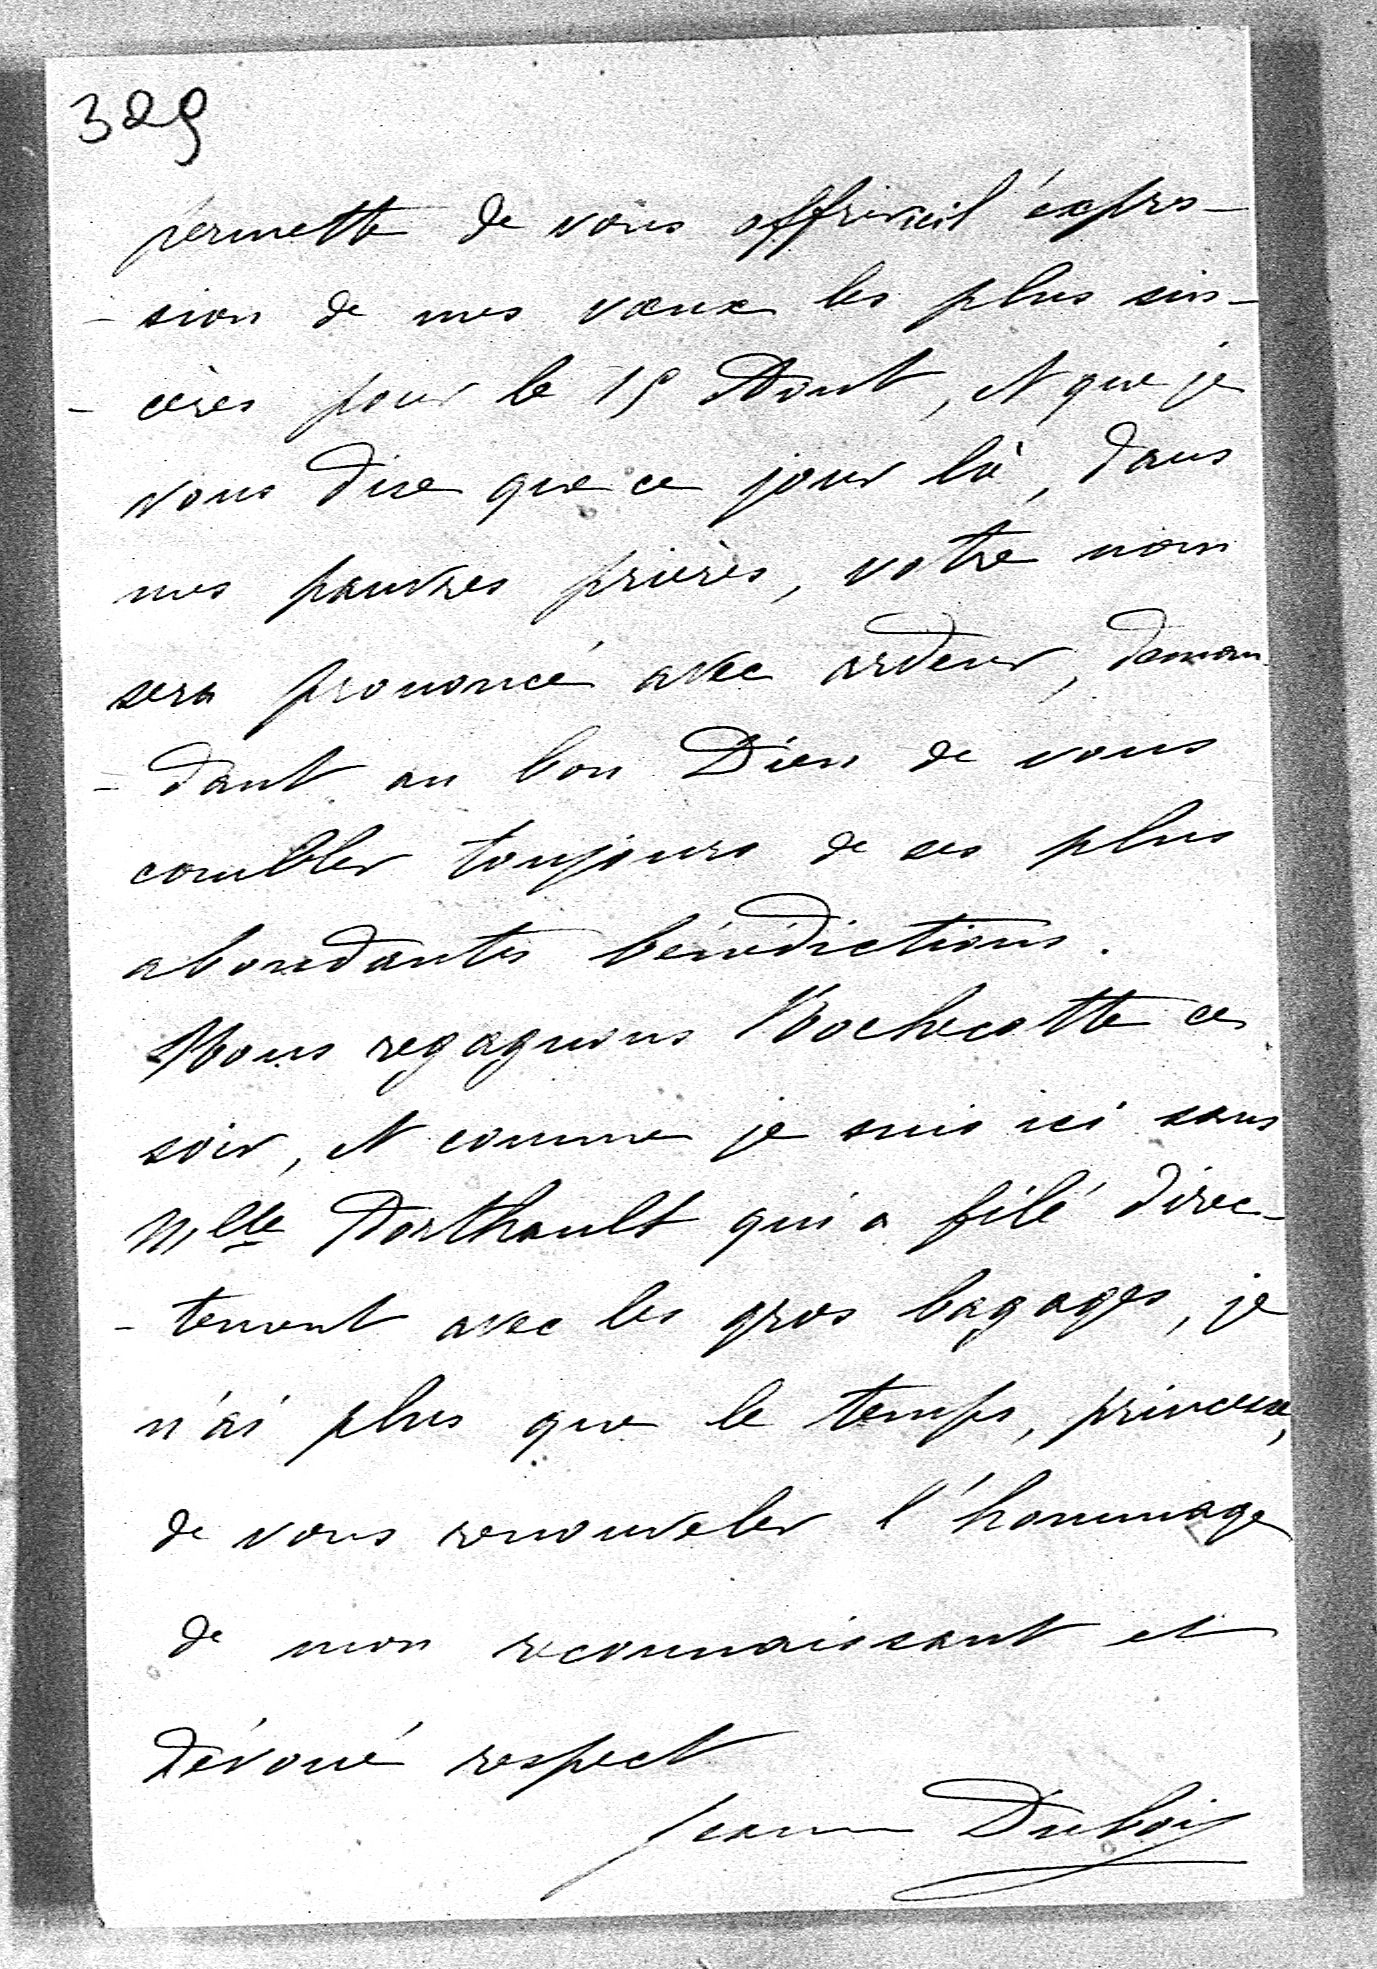 329
permette de vous offrir ici l'expres-
- sion de mes vœux les plus sin-
- cères pour le 15 Aout, et que je
vous dise que ce jour là, dans
mes pauvres prières, votre nom
sera prononcé avec ardeur, deman-
- dant au bon Dieu de vous
combler toujours de ses plus
abondantes bénédictions.
Nous regagnons Rochecotte ce
soir, et comme je suis ici sans
Mlle qui a filé direc-
- tement avec les gros bagages, je
n'ai plus que le temps, princesse,
de vous renouveler l'hommage
de mon reconnaissant et
dévoué respect
Jeanne Dubois